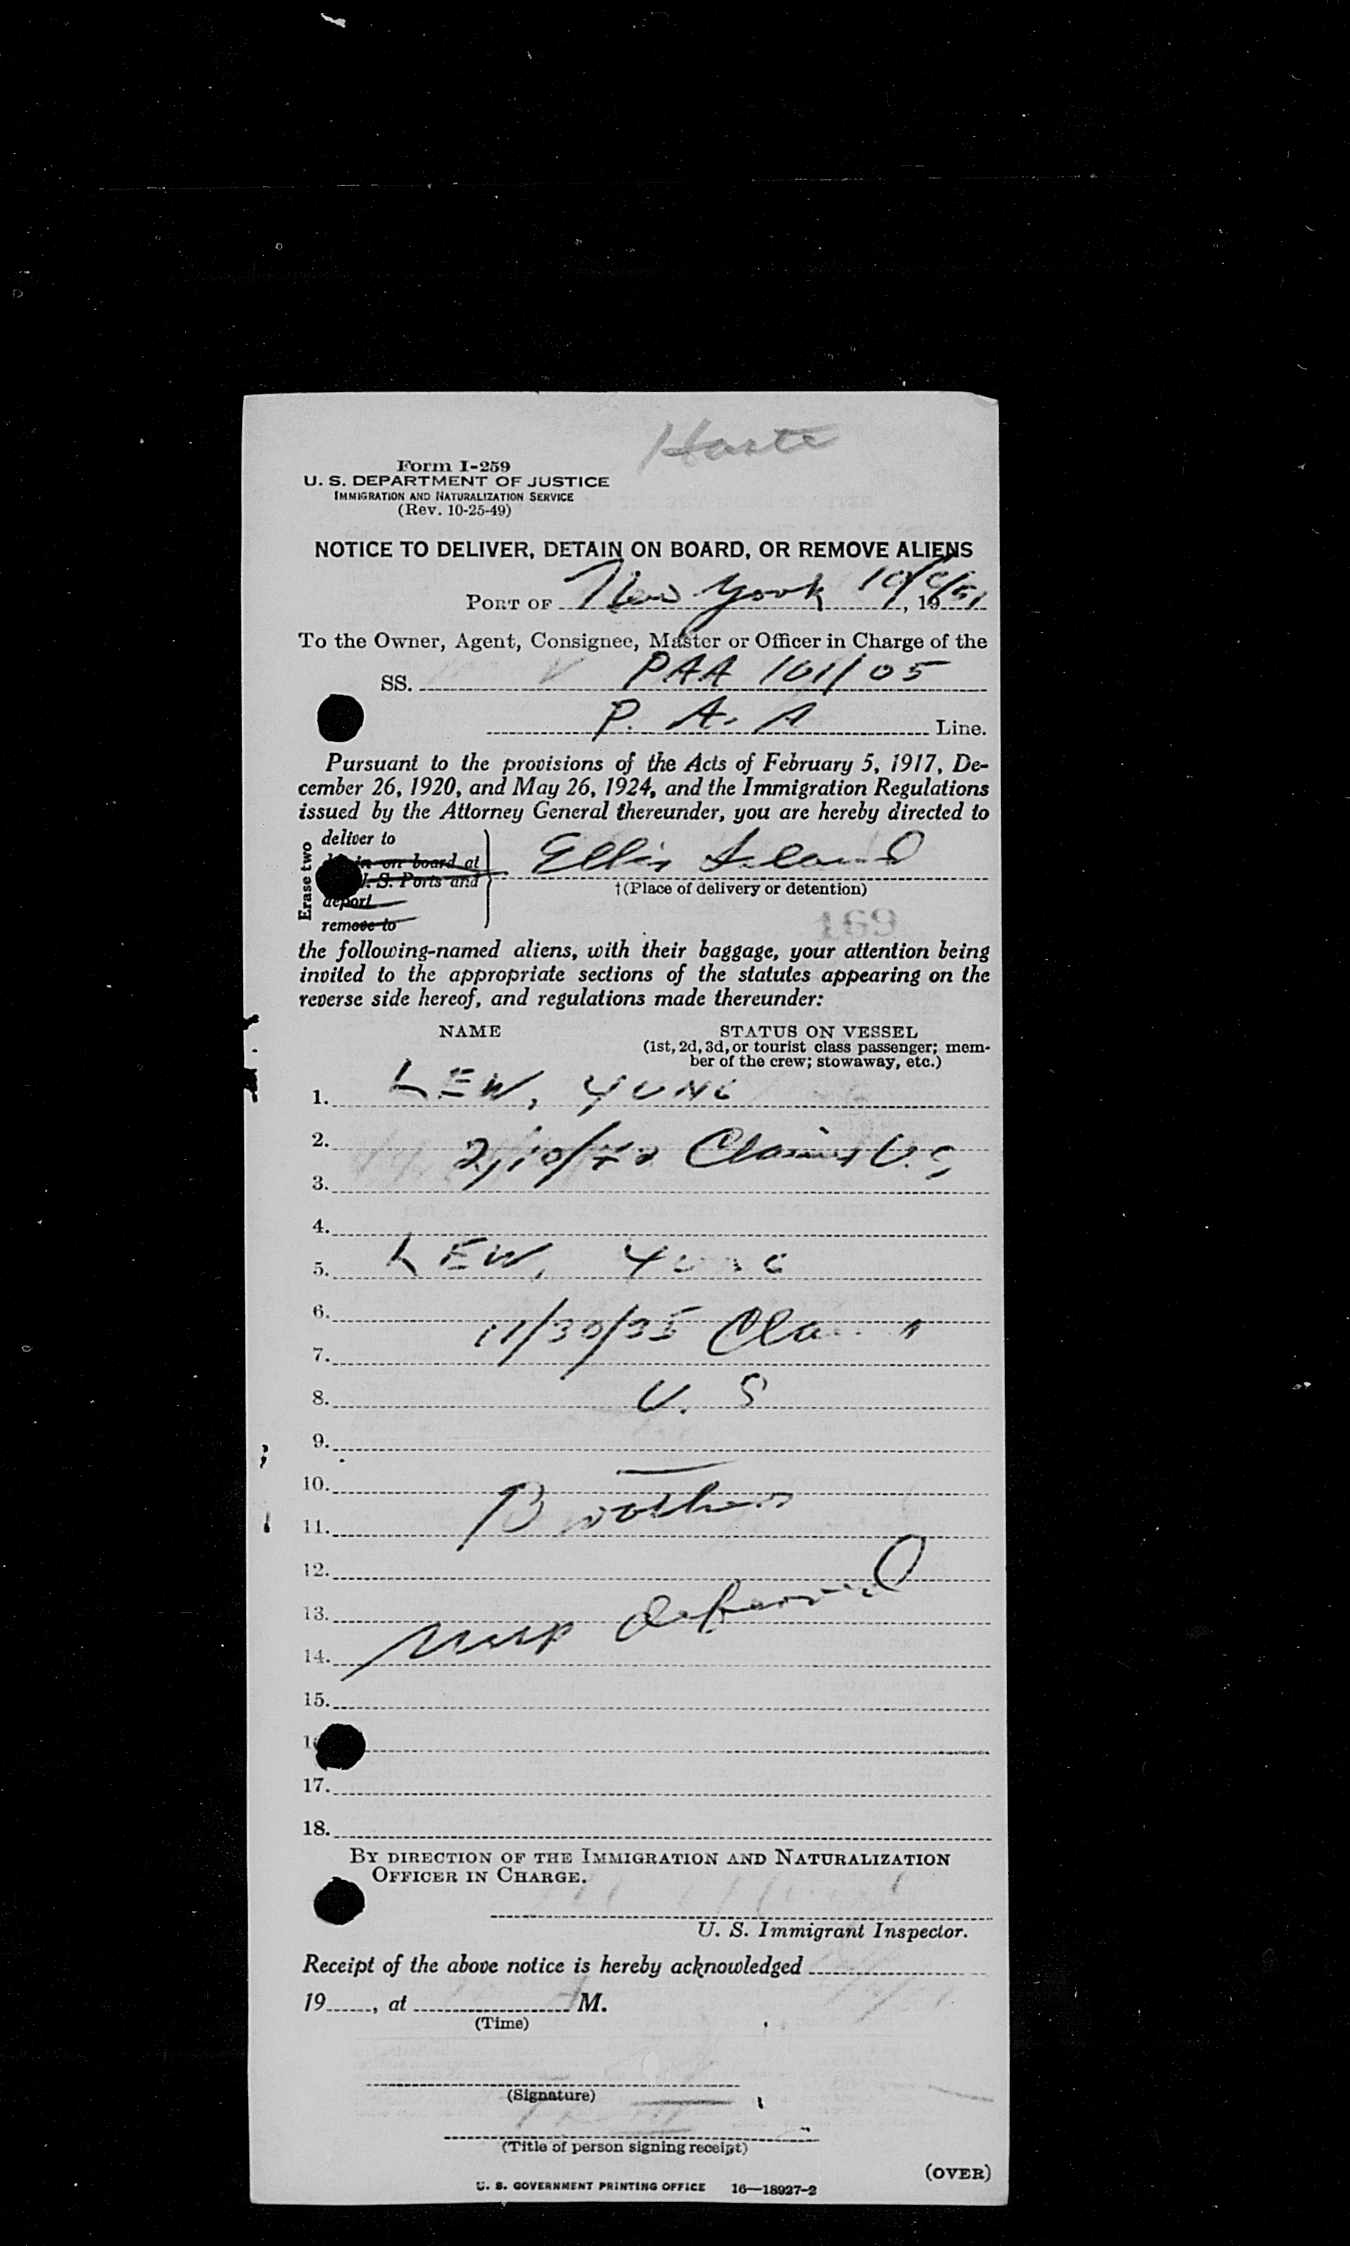 Haste
Form I-259
U. S. DEPARTMENT OF JUSTICE
IMMIGRATION AND NATURALIZATION SERVICE
(Rev. 10-25-49)
NOTICE TO DELIVER, DETAIN ON BOARD, OR REMOVE ALIENS
PORT OF New York, 19
To the Owner, Agent, Consignee, Master or Officer in Charge of the
SS. PAA 101/05
P. A. A Line.
Pursuant to the provisions of the Acts of February 5, 1917, De-
cember 26, 1920, and May 26, 1924, and the Immigration Regulations
issued by the Attorney General thereunder, you are hereby directed to
Erase two
deliver to
in on board at
U. S. Ports and
deport
remove to
Ellis Island
†(Place of delivery or detention)
169
the following-named aliens, with their baggage, your attention being
invited to the appropriate sections of the statutes appearing on the
reverse side hereof, and regulations made thereunder:
NAME STATUS ON VESSEL
(1st, 2d, 3d, or tourist class passenger; mem-
ber of the crew; stowaway, etc.)
1. LEW, YUNG
2. Claims U.S.
3.
4.
5. LEW, YUNG
6. 11/30/35
7.
8. U. S
9.
10.
11. Brothers
12.
13. deferred
14.
15.
16.
17.
18.
BY DIRECTION OF THE IMMIGRATION AND NATURALIZATION
OFFICER IN CHARGE.
U. S. Immigrant Inspector.
Receipt of the above notice is hereby acknowledged
19, at M.
(Time)
(Signature)
(Title of person signing receipt)
(OVER)
U. S. GOVERNMENT PRINTING OFFICE 16—18927-2